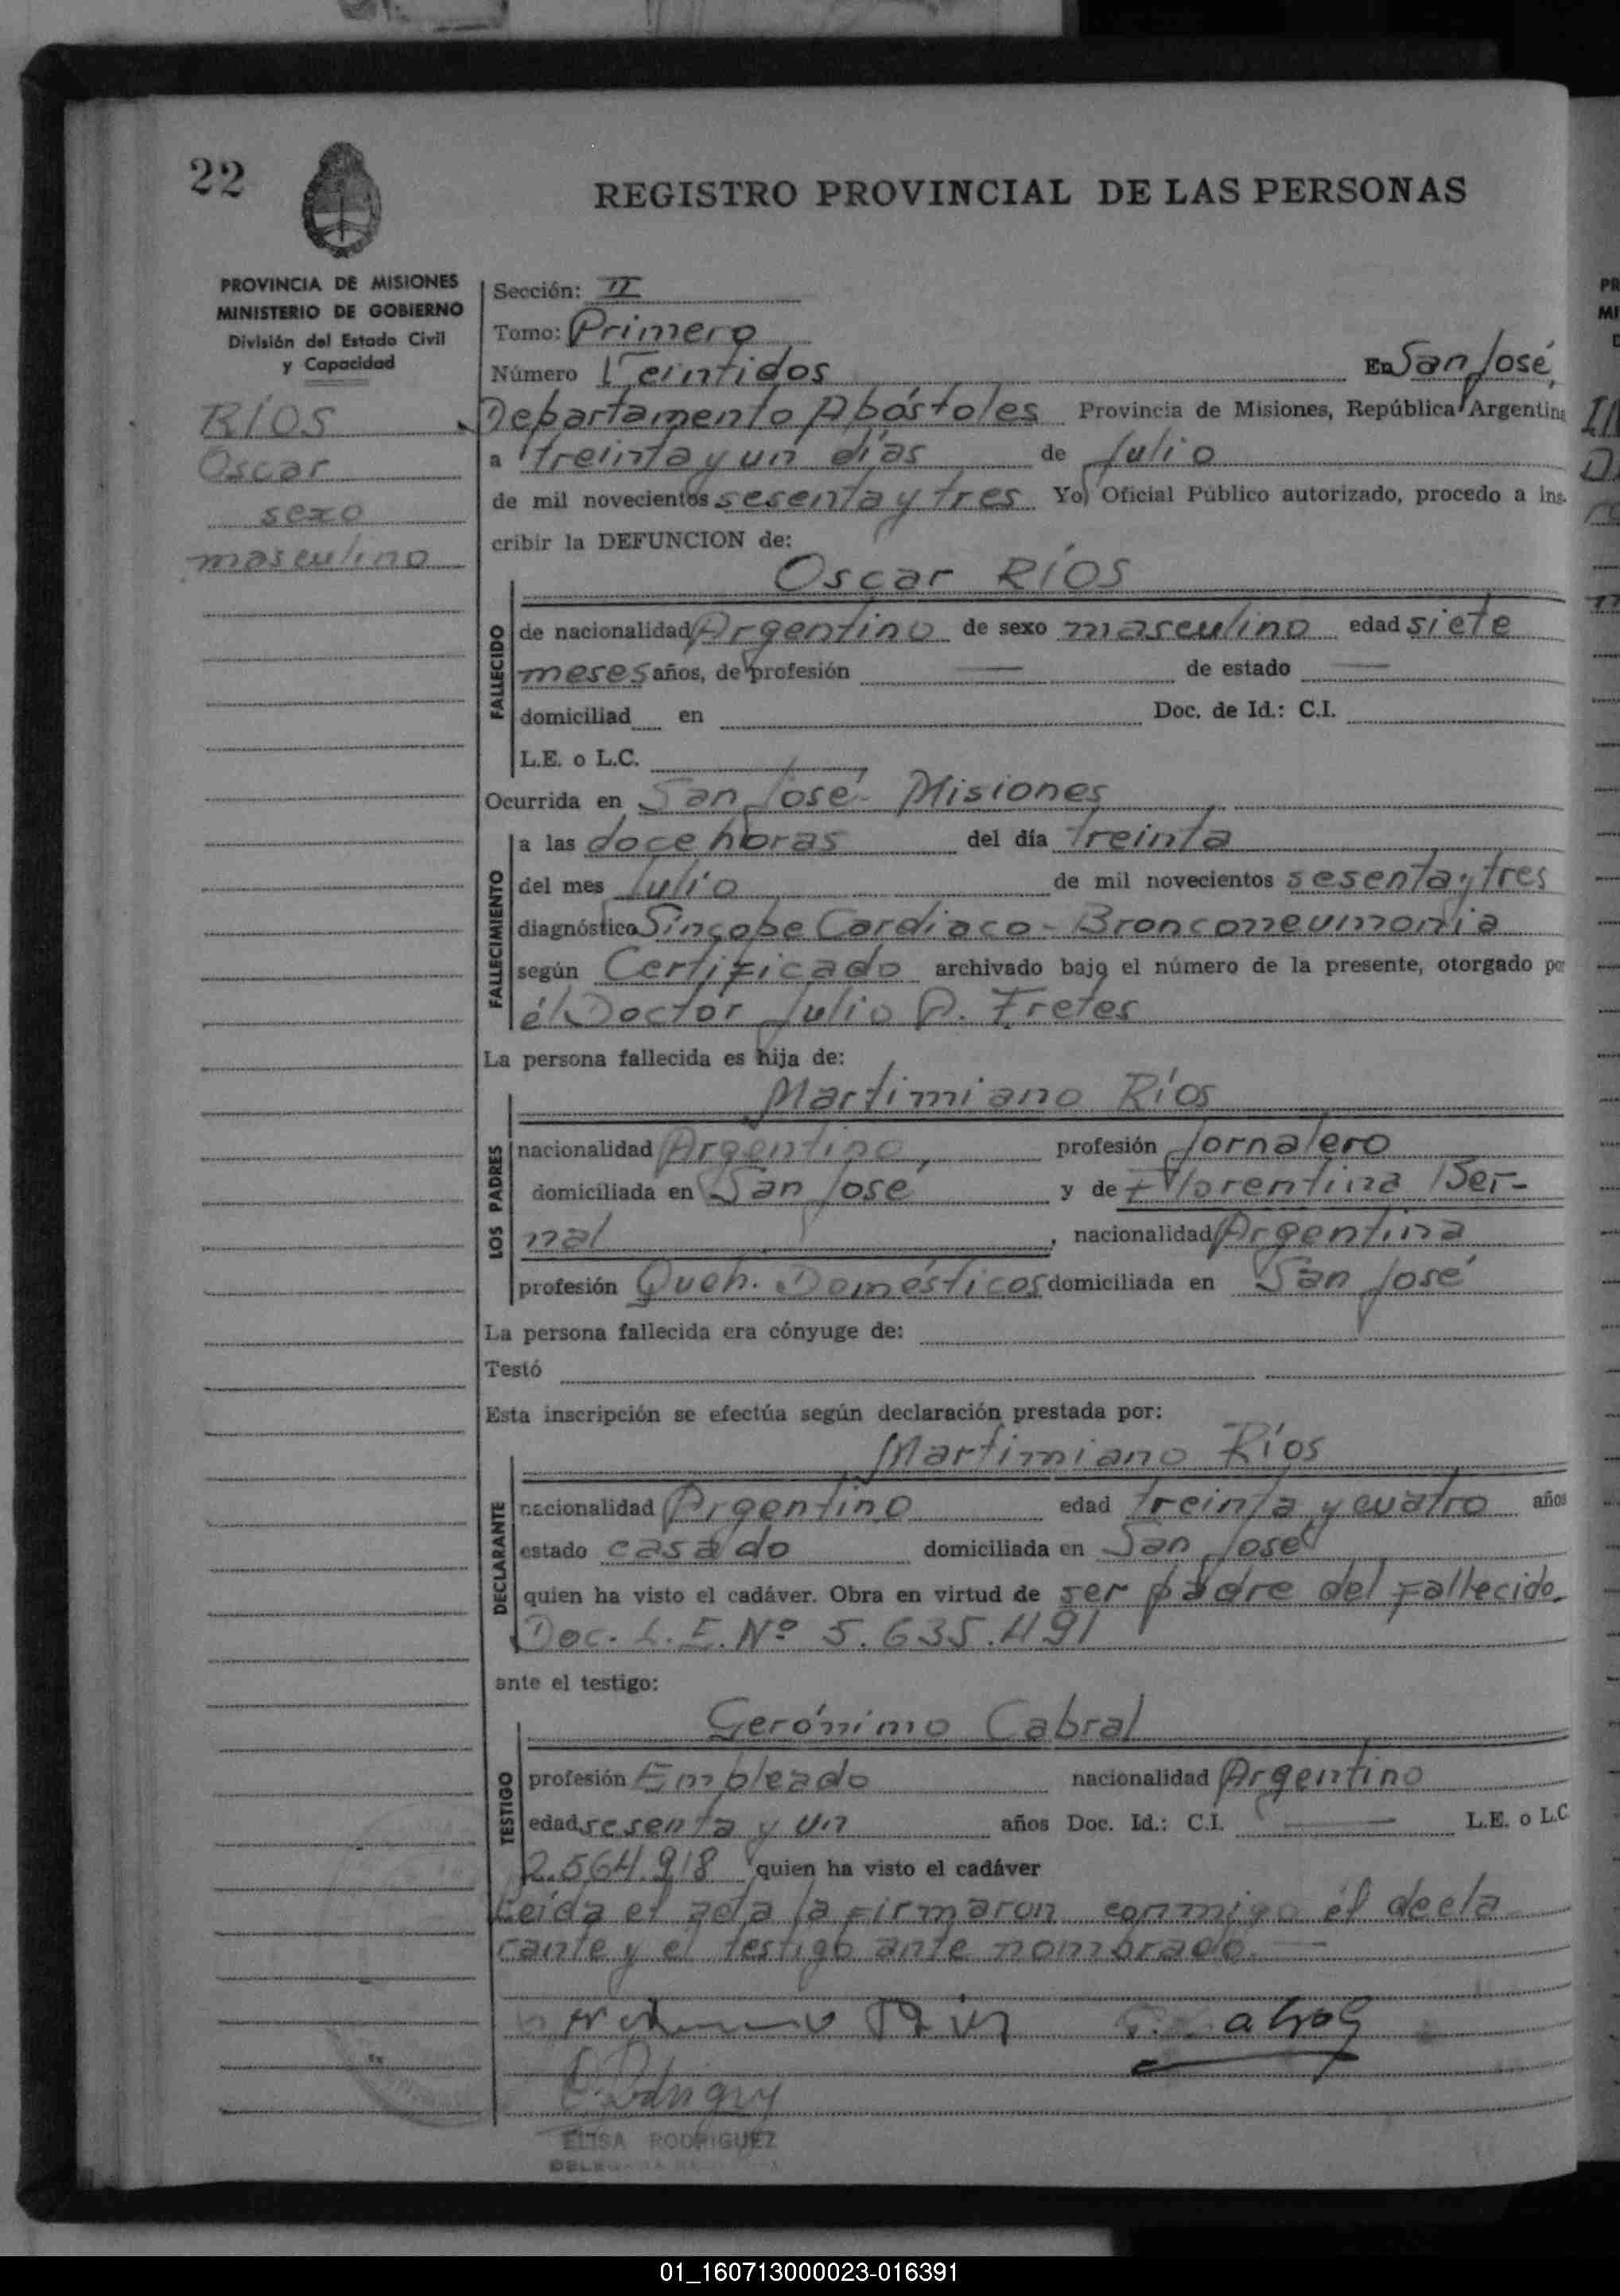 22
REGISTRO PROVINCIAL DE LAS PERSONAS
PROVINCIA DE MISIONES
MINISTERIO DE GOBIERNO
División del Estado Civil
y Capacidad
RÍOS
Oscar
sexo
masculino
Sección: II
Tomo: Primero
Número Veintidos En San José,
Departamento Apóstoles Provincia de Misiones, República Argentina
a treinta y un días de Julio
de mil novecientos sesenta y tres Yo, Oficial Público autorizado, procedo a ins-
cribir la DEFUNCION de:
Oscar RÍOS
FALLECIDO
de nacionalidad Argentino de sexo masculino edad siete
meses años, de profesión — de estado —
domiciliad en Doc. de Id.: C.I.
L.E. o L.C.
Ocurrida en San José - Misiones
FALLECIMIENTO
a las doce horas del día treinta
del mes Julio de mil novecientos sesenta y tres
diagnóstico Síncope Cardiaco - Bronconeumonia
según Certificado archivado bajo el número de la presente, otorgado por
él Doctor Julio A. Fretes
La persona fallecida es hija de:
Martimiano Ríos
LOS PADRES
nacionalidad Argentino, profesión Jornalero
domiciliada en San José y de Florentina Ber-
nal, nacionalidad Argentina
profesión Queh. Domésticos domiciliada en San José
La persona fallecida era cónyuge de:
Testó
Esta inscripción se efectúa según declaración prestada por:
Martimiano Ríos
DECLARANTE
nacionalidad Argentino edad treinta y cuatro años
estado casado domiciliada en San José
quien ha visto el cadáver. Obra en virtud de ser padre del fallecido.
Doc. L.E. Nº 5.635.491
ante el testigo:
Gerónimo Cabral
TESTIGO
profesión Empleado nacionalidad Argentino
edad sesenta y un años Doc. Id.: C.I. — L.E. o L.C
2.564.918 quien ha visto el cadáver
Leída el acta la firmaron conmigo él decla
rante y el testigo ante nombrado. —
ELISA RODRIGUEZ
01_160713000023-016391